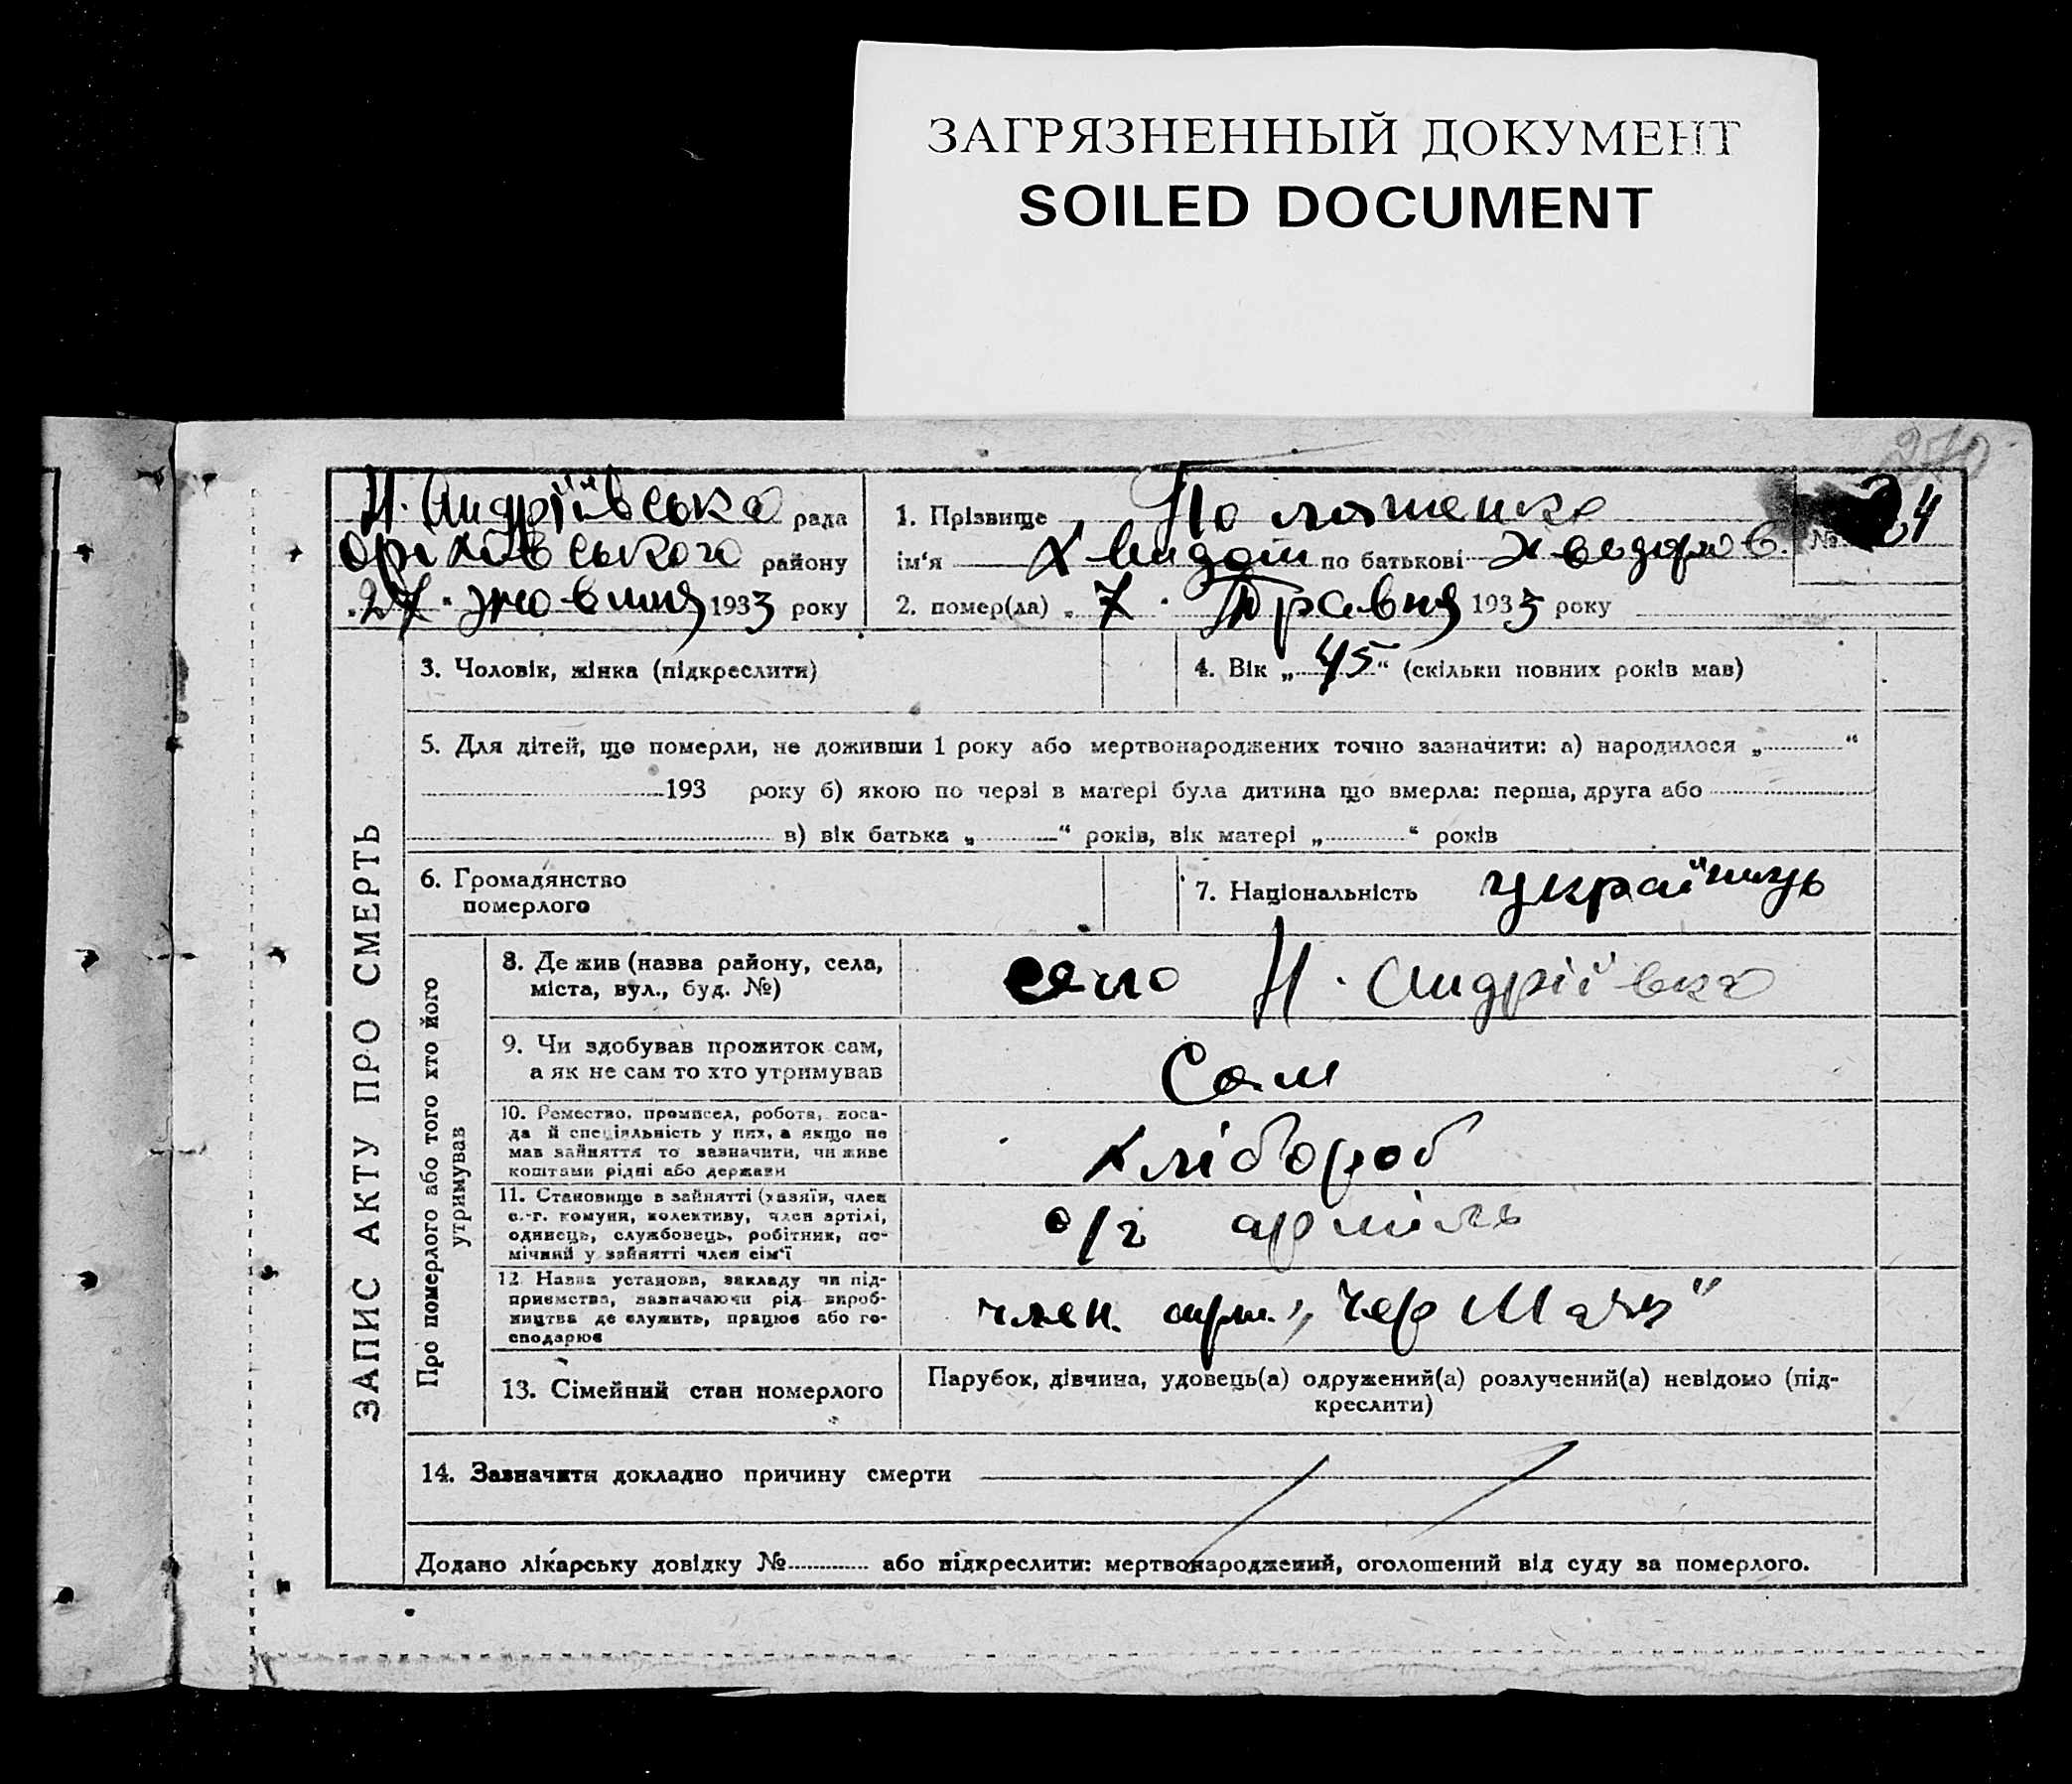 ЗАГРЯЗНЕННЫЙ ДОКУМЕНТ
SOILED DOCUMENT
270
Н. Андріївська рада
Оріхівського району
„27" жовтня 1933 року
1. Прізвище
ім'я по батькові Хведоров.
№ 4
2. помер(ла) „7" Травня 1933 року
ЗАПИС АКТУ ПРО СМЕРТЬ
3. Чоловік, жінка (підкреслити)
4. Вік „45" (скільки повних років мав)
5. Для дітей, що померли, не доживши 1 року або мертвонароджених точно зазначити: а) народилося „ "
193 року б) якою по черзі в матері була дитина що вмерла: перша, друга або
в) вік батька „ " років, вік матері „ " років
6. Громадянство
померлого
7. Національність українць
Про померлого або того хто його
утримував
8. Де жив (назва району, села,
міста, вул., буд. №)
село Н. Андріївка
9. Чи здобував прожиток сам,
а як не сам то хто утримував
Сам
10. Ремество, промисел, робота, поса-
да й спеціяльність у них, а якщо не
мав зайняття то зазначити, чи живе
коштами рідні або держави
хлібороб
11. Становище в зайнятті (хазяїн, член
с.-г. комуни, колективу, член артілі,
одинець, службовець, робітник, по-
мічний у зайнятті член сім'ї
с/г артіль
12. Назва установи, закладу чи під-
приємства, зазначаючи рід вироб-
ництва де служить, працює або го-
сподарює
член. арт. „Чер Маяк"
13. Сімейний стан померлого
Парубок, дівчина, удовець(а) одружений(а) розлучений(а) невідомо (під-
креслити)
14. Зазначити докладно причину смерти
Додано лікарську довідку № або підкреслити: мертвонароджений, оголошений від суду за померлого.